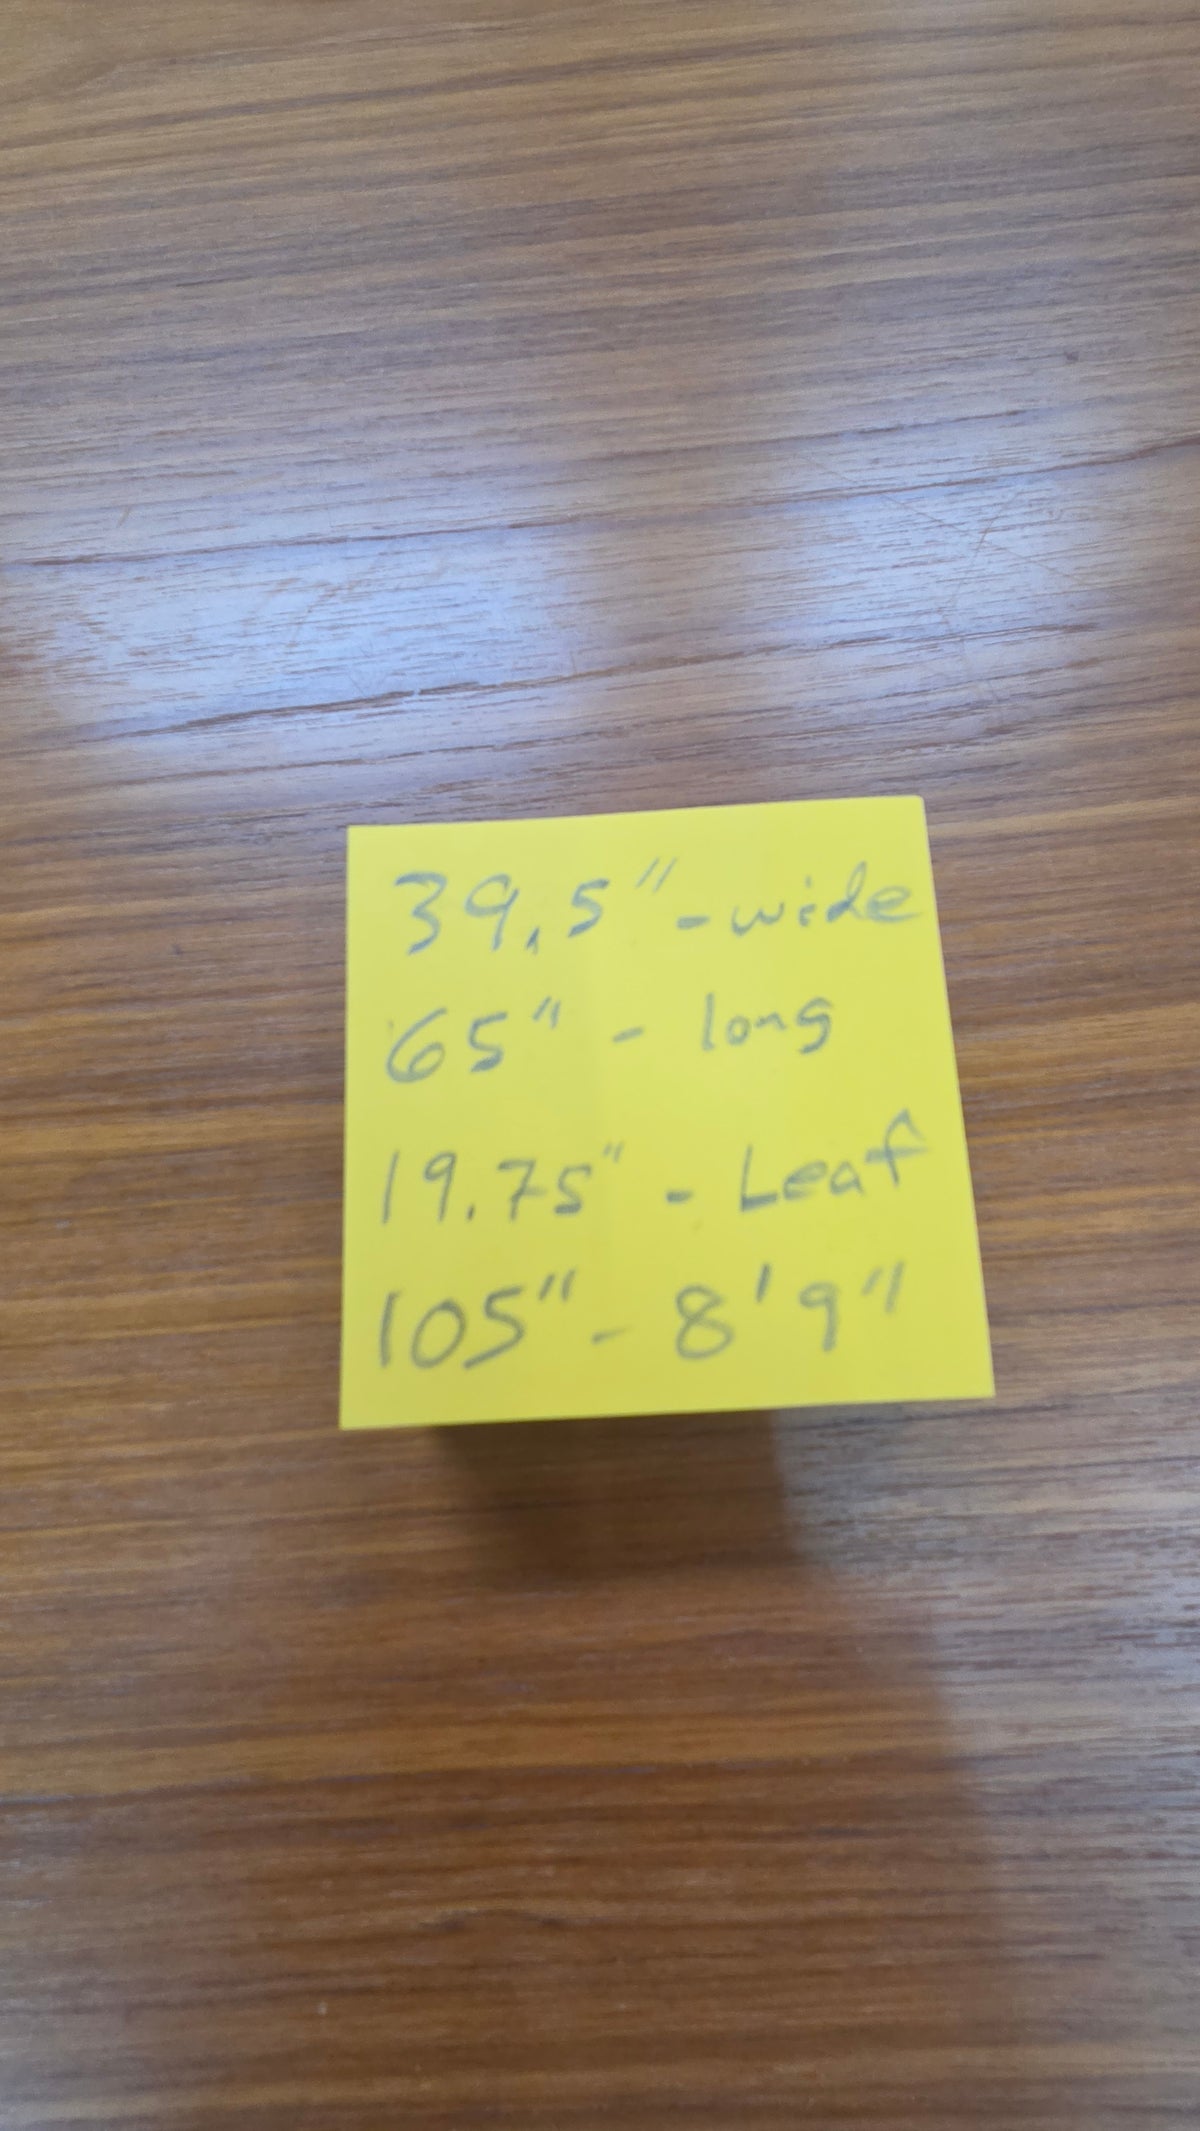 39.5" - wide
65" - long
19.75" - Leaf
105" - 8'9"